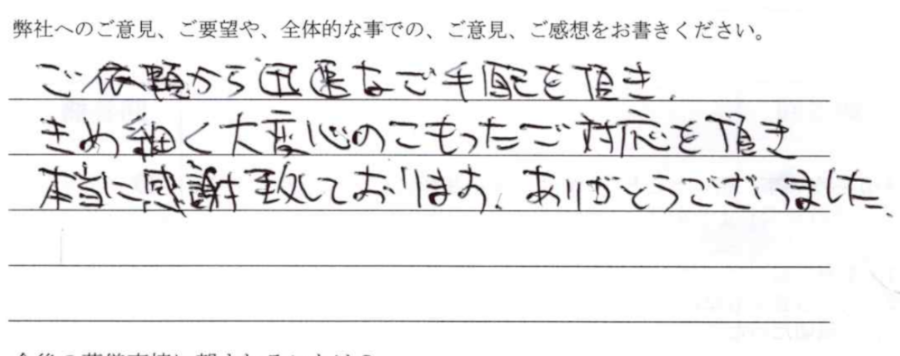 弊社へのご意見、ご要望や、全体的な事での、ご意見、ご感想をお書きください。
ご依頼から迅速なご手配を頂き、
きめ細く大変心のこもったご対応を頂き
本当に感謝致しております。ありがとうございました。